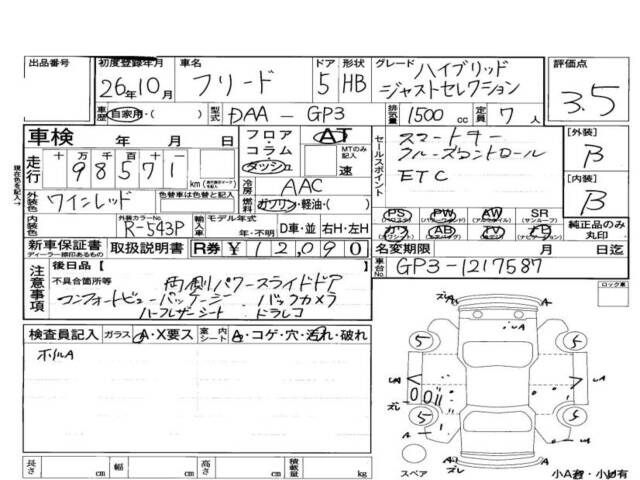 出品番号 初度登録年月 車名 ドア 形状 グレード 評価点
26年10月 フリード 5 HB ハイブリッド ジャストセレクション 3.5
車歴 自家用・( ) 型式 DAA-GP3 排気量 1500cc 定員 7人
車検 年 月 日 フロア・コラム ダッシュ AT MTのみ記入 速 セールスポイント スマートキー [外装] B
走行 十 万 千 百 十 一 98571 km クルーズコントロール
ETC [内装] B
外装色 ワインレッド 色替車は色替と記入 冷房 AAC 燃料 ガソリン・軽油・( )
内装色 外装カラーNo. R-543P 輸入車 モデル年式 年・不明 D車・並 右H・左H
PS PW AW SR (サンルーフ)
カワ AB TV ナビ 純正品のみ丸印
新車保証書 ディーラー捺印あるもの 取扱説明書 R券 ¥12,090 名変期限 月 日迄
車台No. GP3-1217587
注意事項 後日品 [ ]
不具合箇所等 両側パワースライドドア
コンフォートビューパッケージ バックカメラ
ハーフレザーシート ドラレコ
ロック車
検査員記入 ガラス A・X要ス 室内 シート A・コゲ・穴・汚れ・破れ
ホイルA
ズレ
A
5 5
A A
ズレ
5 5
スペア A ズレ A
小A有・小凹有
長さ cm 幅 cm 高さ cm 積載量 kg
現在色を記入→